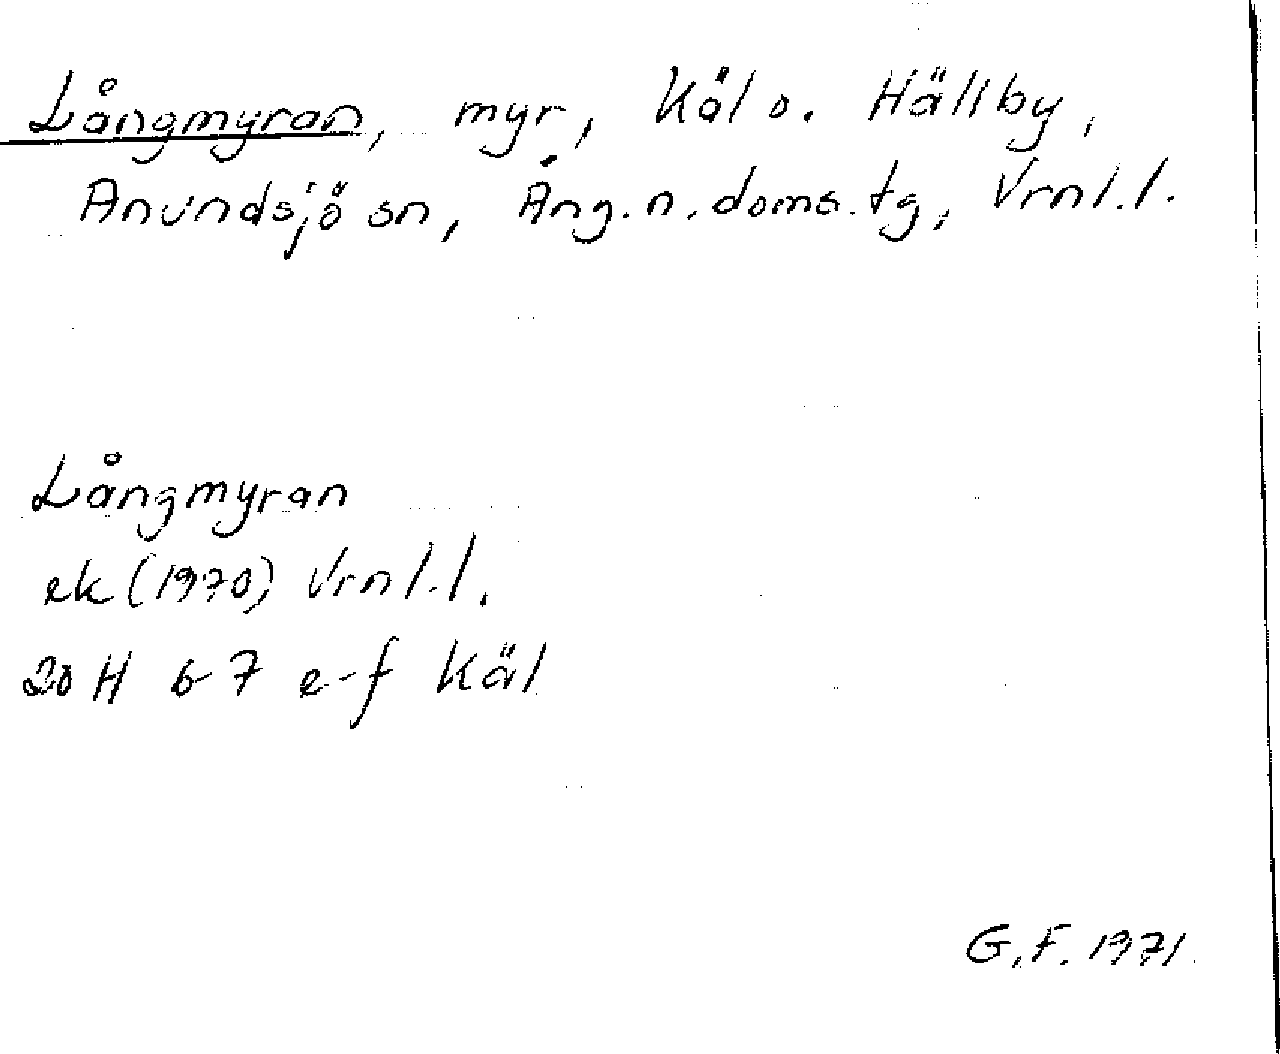 Långmyran, myr, Käl o. Hällby,
Anundsjö sn, Ång. n. doms. tg, Vrnl. l.
Långmyran
ek (1970) Vrnl. l.
20 H 6-7 e-f Käl
G. F. 1971.